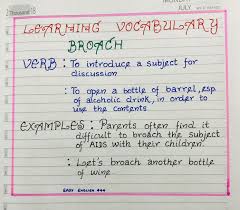 Thousand 10
JULY
LEARNING VOCABULARY
BROACH
VERB : To introduce a subject for
discussion
: To open a bottle of barrel, esp
of alcoholic drink, in order to
use the contents
EXAMPLES : Parents often find it
difficult to broach the subject
of "AIDS with their children.
: Let's broach another bottle
of wine
EASY ENGLISH